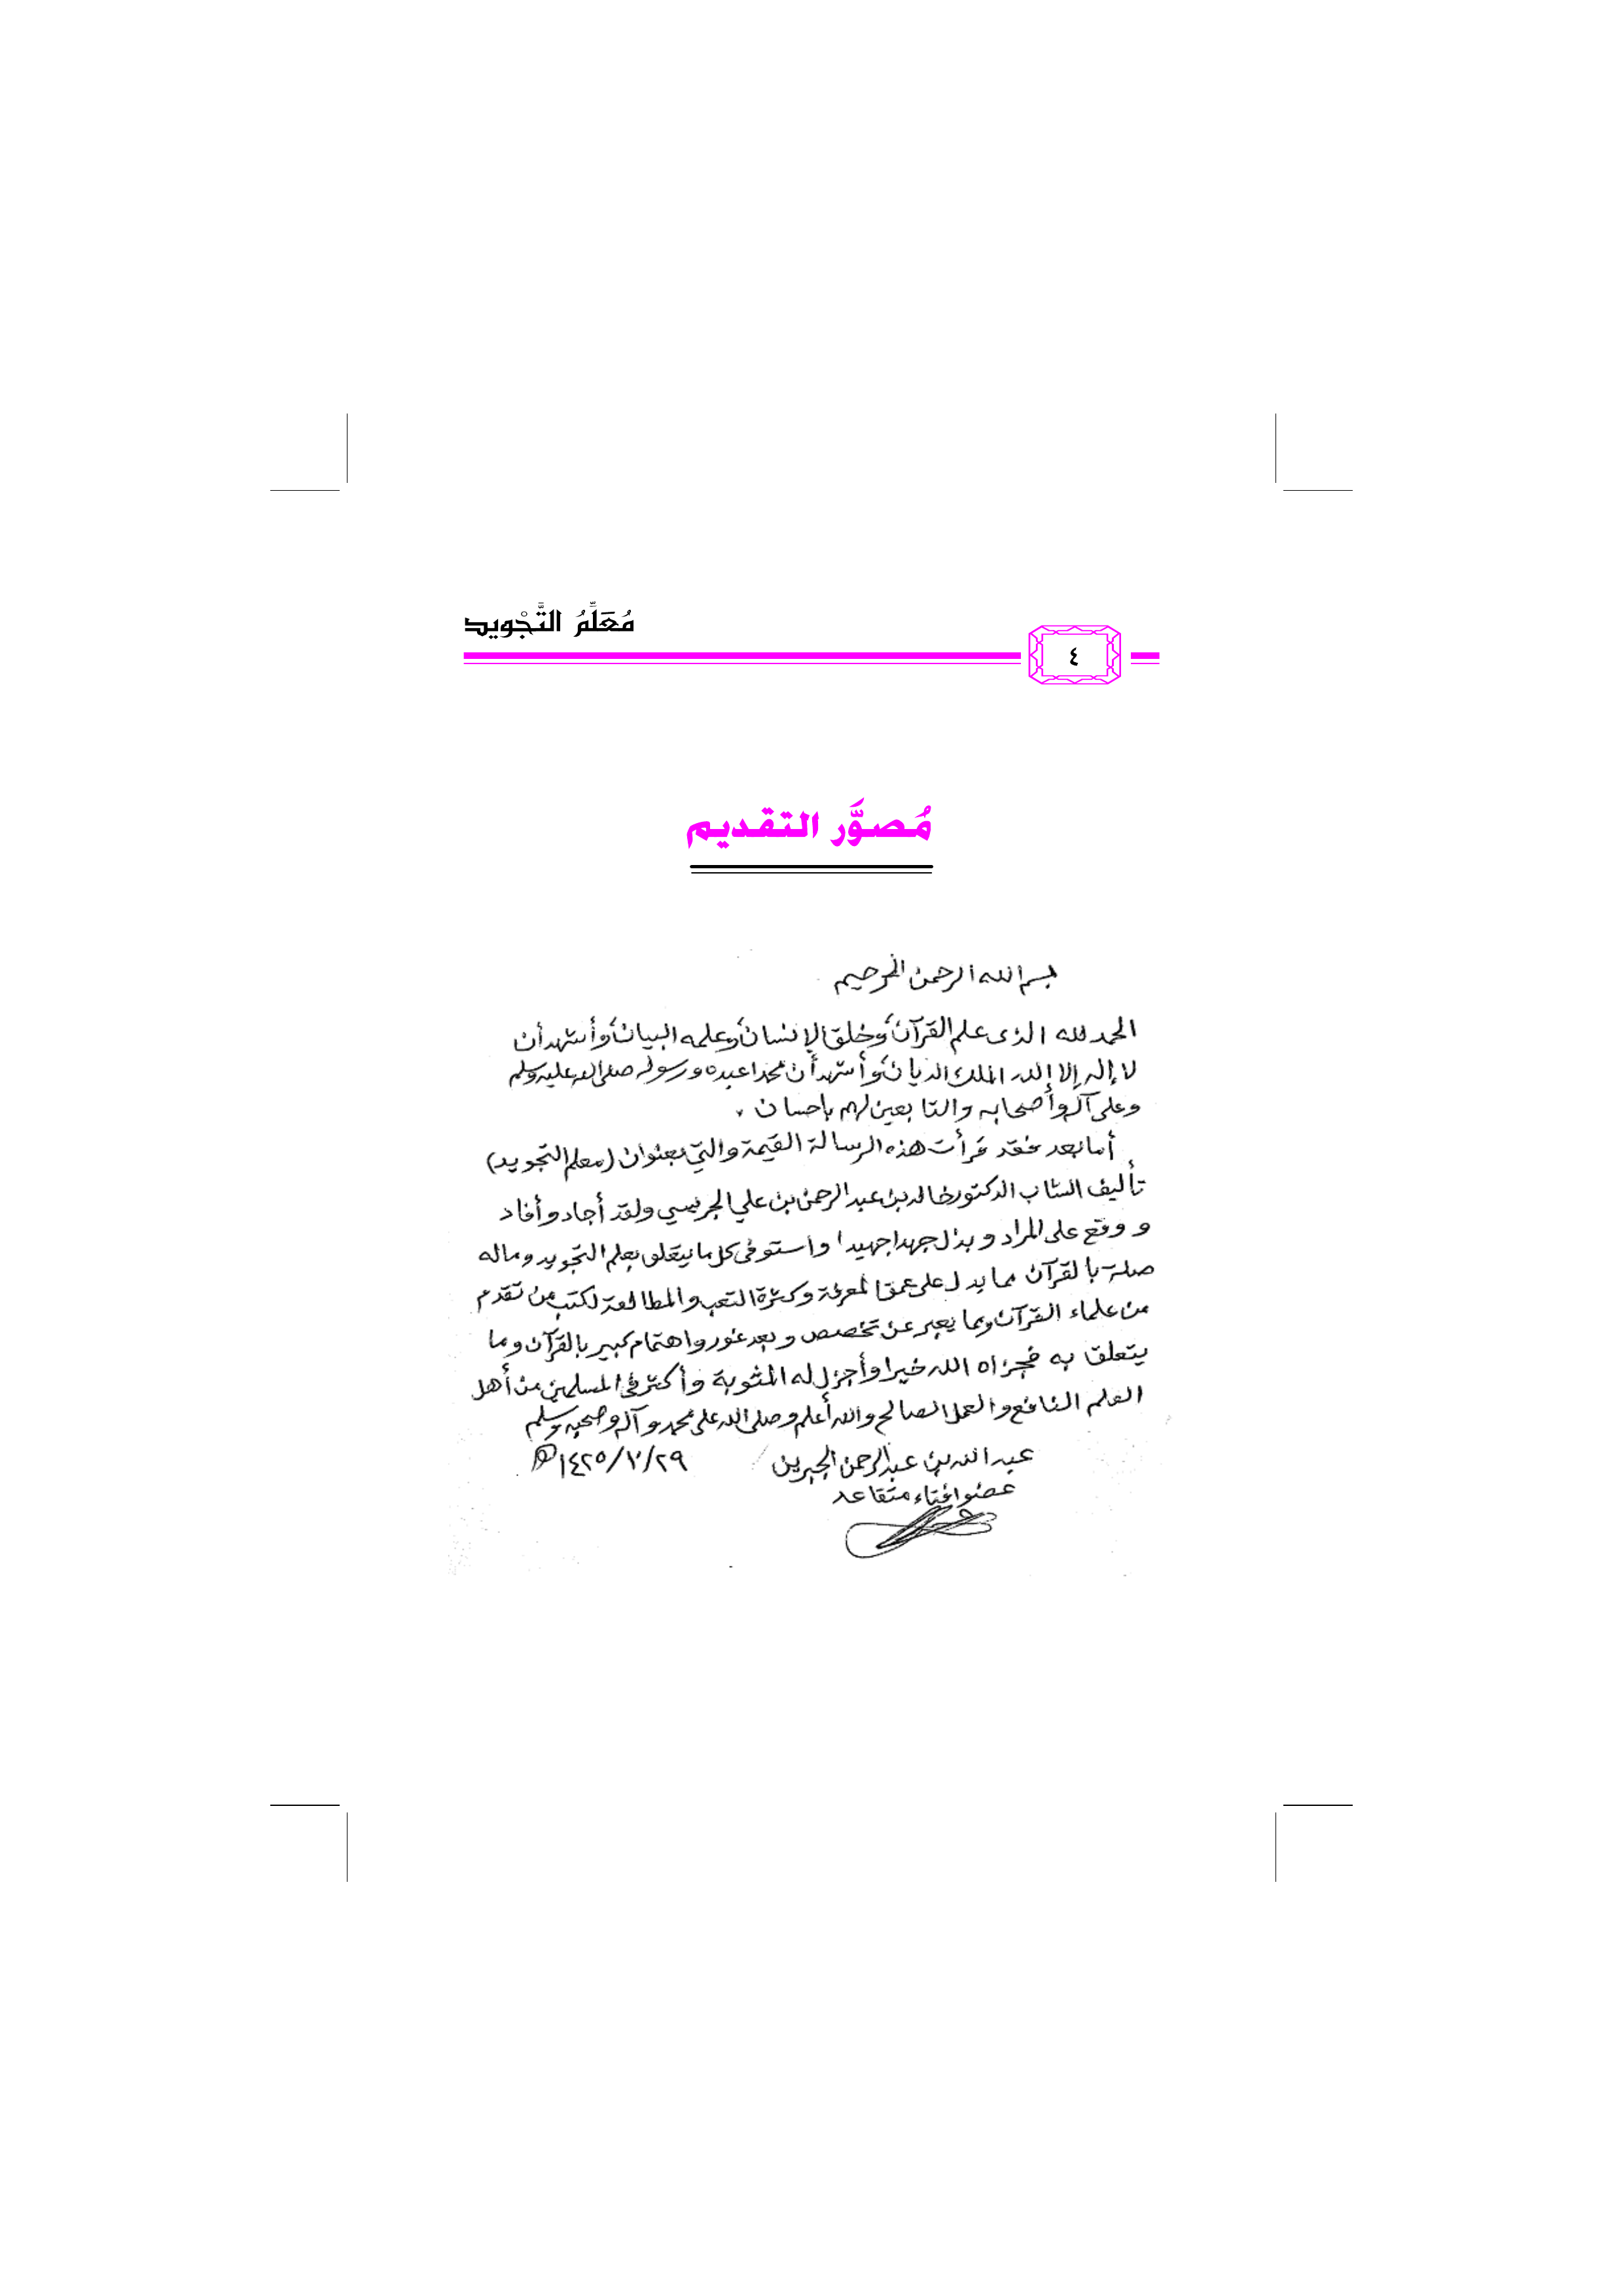 مُعَلِّمُ التَّجْويد
٤
مُصوَّر التقديم
بسم الله الرحمن الرحيم
الحمد لله الذى علم القرآن وخلق الإنسان وعلمه البيان وأشهد أن
لا إله إلا الله الملك الديان وأشهد أن محمدا عبده ورسوله صلى الله عليه وسلم
وعلى آله وأصحابه والتابعين لهم بإحسان .
أما بعد فقد قرأت هذه الرسالة القيمة والتي بعنوان (معلم التجويد)
تأليف الشاب الدكتور خالد بن عبد الرحمن بن علي الجريسي ولقد أجاد وأفاد
و وقع على المراد و بذل جهدا جهيدا واستوفى كل ما يتعلق بعلم التجويد وماله
صلة بالقرآن مما يدل على عمق المعرفة وكثرة التعب والمطالعة لكتب من تقدم
من علماء القرآن ومما يعبر عن تخصص وبعد غور واهتمام كبير بالقرآن وما
يتعلق به فجزاه الله خيرا وأجزل له المثوبة وأكثر في المسلمين من أهل
العلم النافع والعمل الصالح والله أعلم وصلى الله على محمد وآله وصحبه وسلم
عبد الله بن عبد الرحمن الجبرين
عضو إفتاء متقاعد